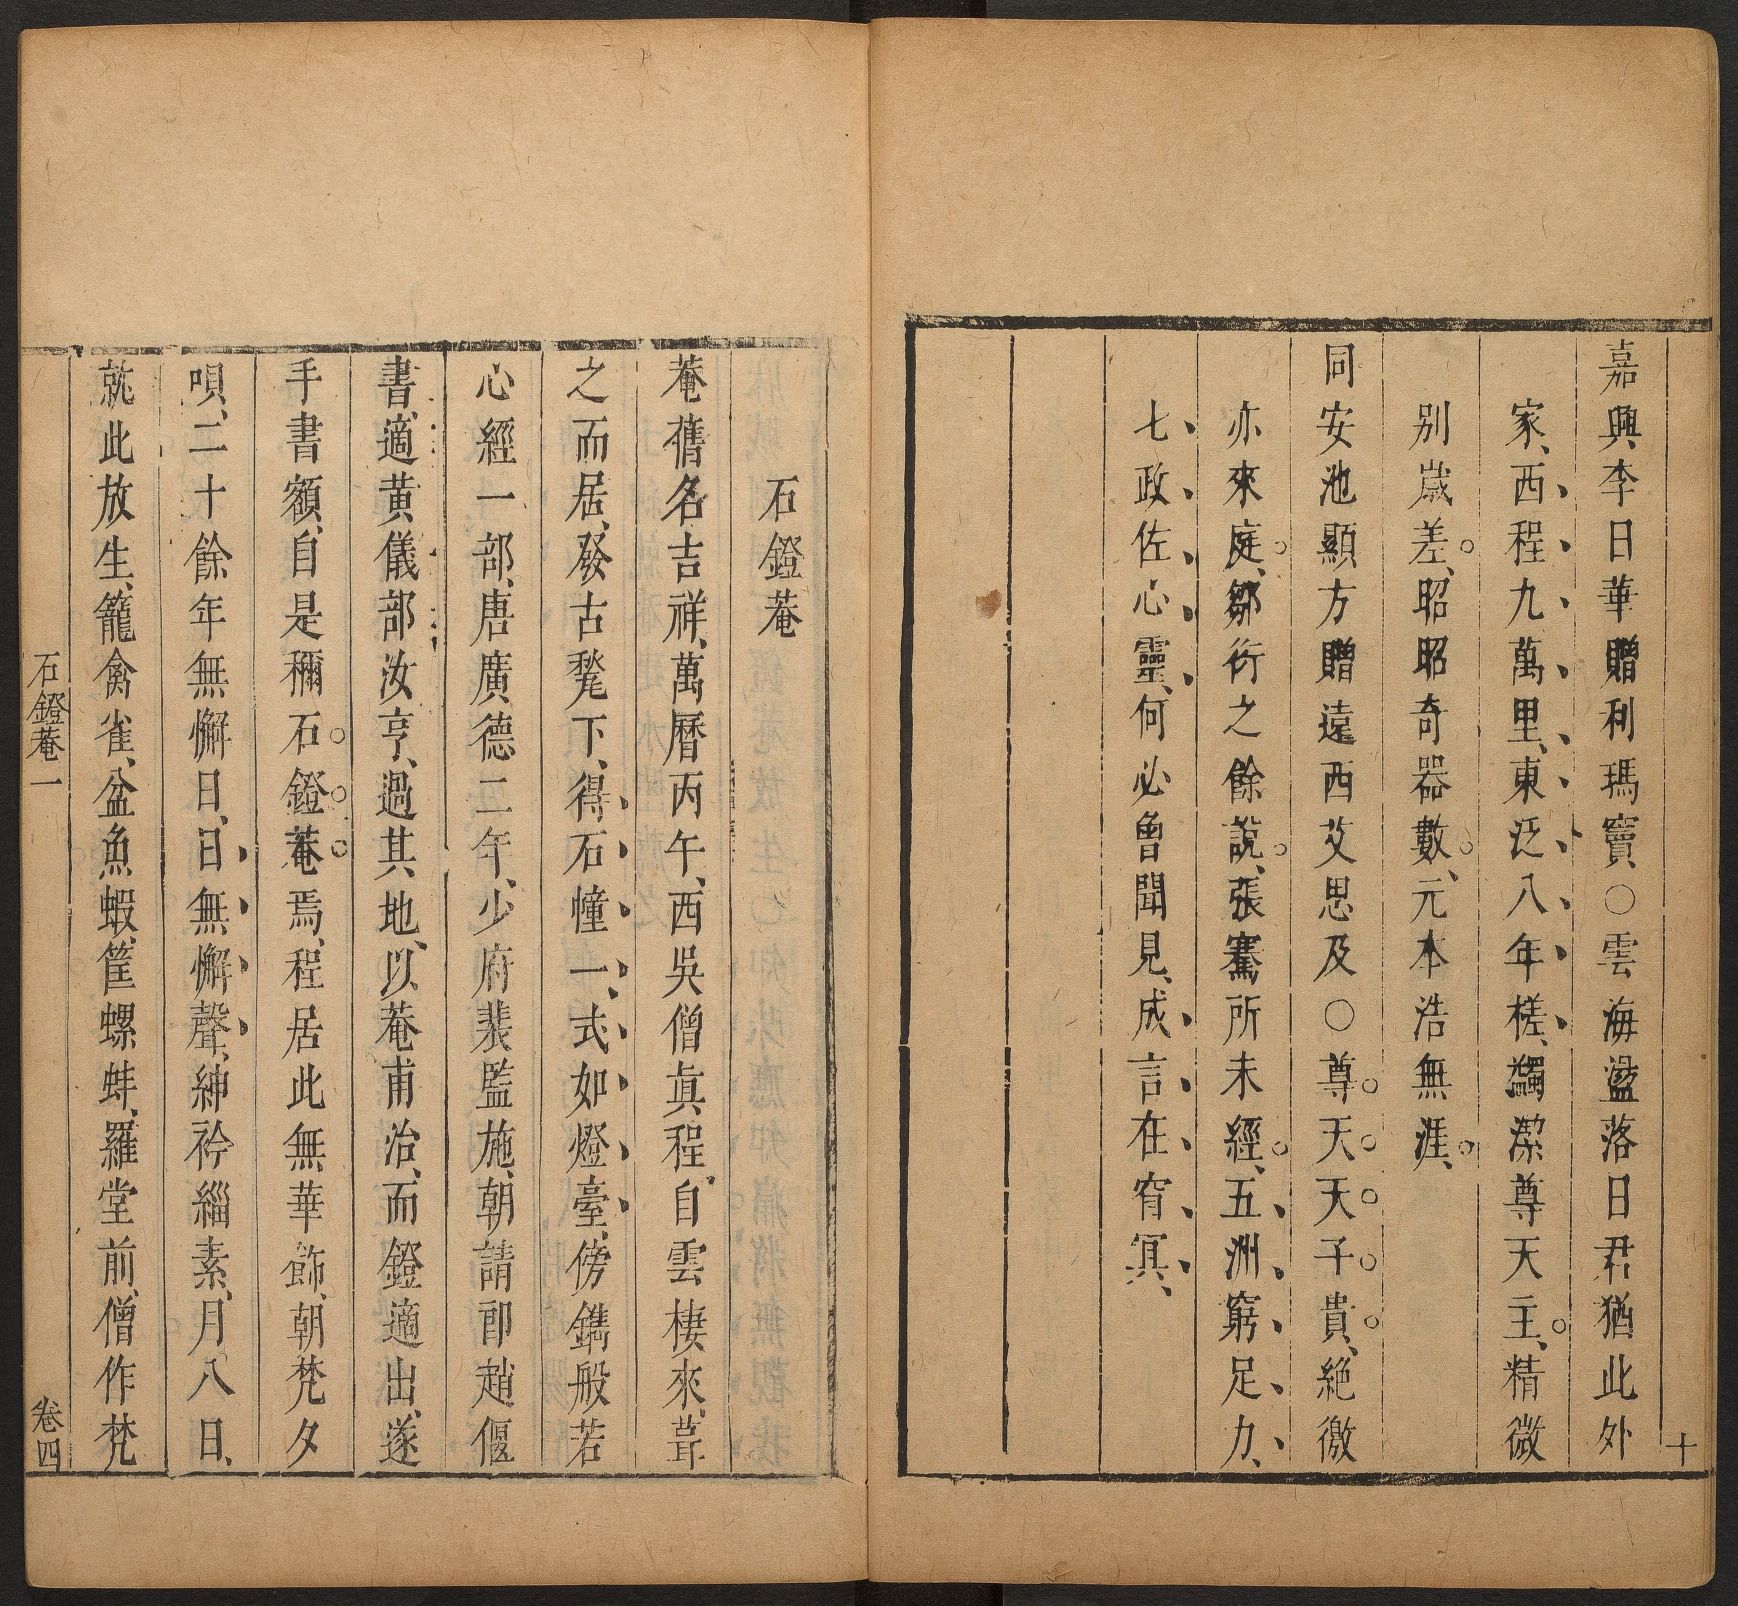 十
嘉興李日華贈利瑪竇○雲海盪落日君猶此外
家、西程九萬里、東泛八年槎、蠲潔尊天主、精微
別歲差、昭昭奇器數、元本浩無涯、
同安池顯方贈遠西艾思及○尊天天子貴、絕徼
亦來庭、鄒衍之餘說、張騫所未經、五洲窮足力、
七政佐心靈、何必魯聞見、成言在窅冥、
石鐙菴
菴舊名吉祥、萬曆丙午、西吳僧眞程、自雲棲來、葺
之而居、發古甃下、得石幢一、式如燈臺、傍鐫般若
心經一部、唐廣德二年、少府裴監施、朝請郎趙偃
書、適黃儀部汝亨、過其地、以菴甫治、而鐙適出、遂
手書額、自是稱石鐙菴焉、程居此無華飾、朝梵夕
唄、二十餘年無懈日、日無懈聲、紳衿緇素、月八日、
就此放生、籠禽雀、盆魚蝦、筐螺蚌、羅堂前、僧作梵
石鐙菴一
卷四